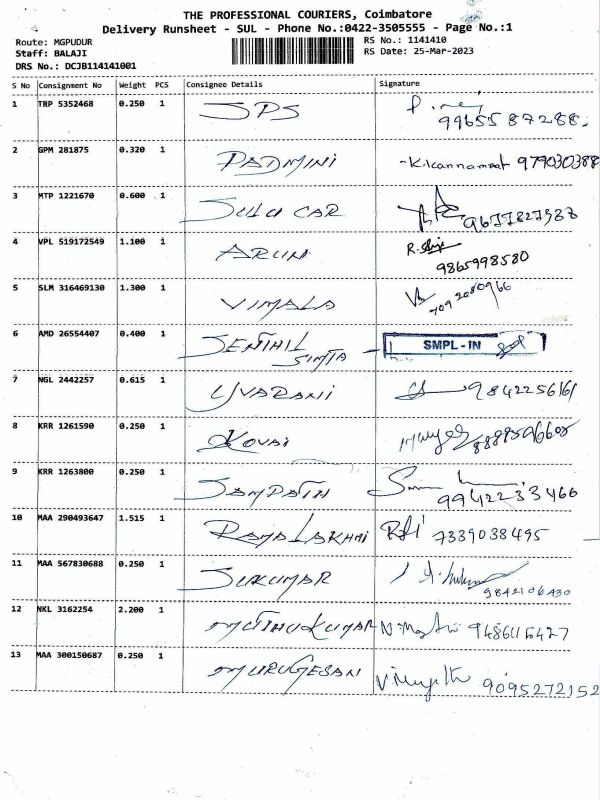 THE PROFESSIONAL COURIERS, Coimbatore
Delivery Runsheet - SUL - Phone No.:0422-3505555 - Page No.:1
Route: MGPUDUR RS No.: 1141410
Staff: BALAJI RS Date: 25-Mar-2023
DRS No.: DCJB114141001
S No Consignment No Weight PCS Consignee Details Signature
1 TRP 5352468 0.250 1 SPS
9965587288
2 GPM 281875 0.320 1 PADMINI 979030388
3 MTP 1221670 0.600 1 SULU CAR 9677827987
4 VPL 519172549 1.100 1 ARUN
9865998580
5 SLM 316469130 1.300 1 VIMALA 7092080966
6 AMD 26554407 0.400 1 SENTHIL SMPL-IN
7 NGL 2442257 0.615 1 UVARANI 9842256161
8 KRR 1261590 0.250 1 KOVAI
9 KRR 1263800 0.250 1 SAMPATH
9942233466
10 MAA 290493647 1.515 1 RAJALAKHMI 7339038495
11 MAA 567830688 0.250 1 SUKUMAR
9842106430
12 NKL 3162254 2.200 1 MUTHUKUMAR
13 MAA 300150687 0.250 1 MURUGESAN 9095272152